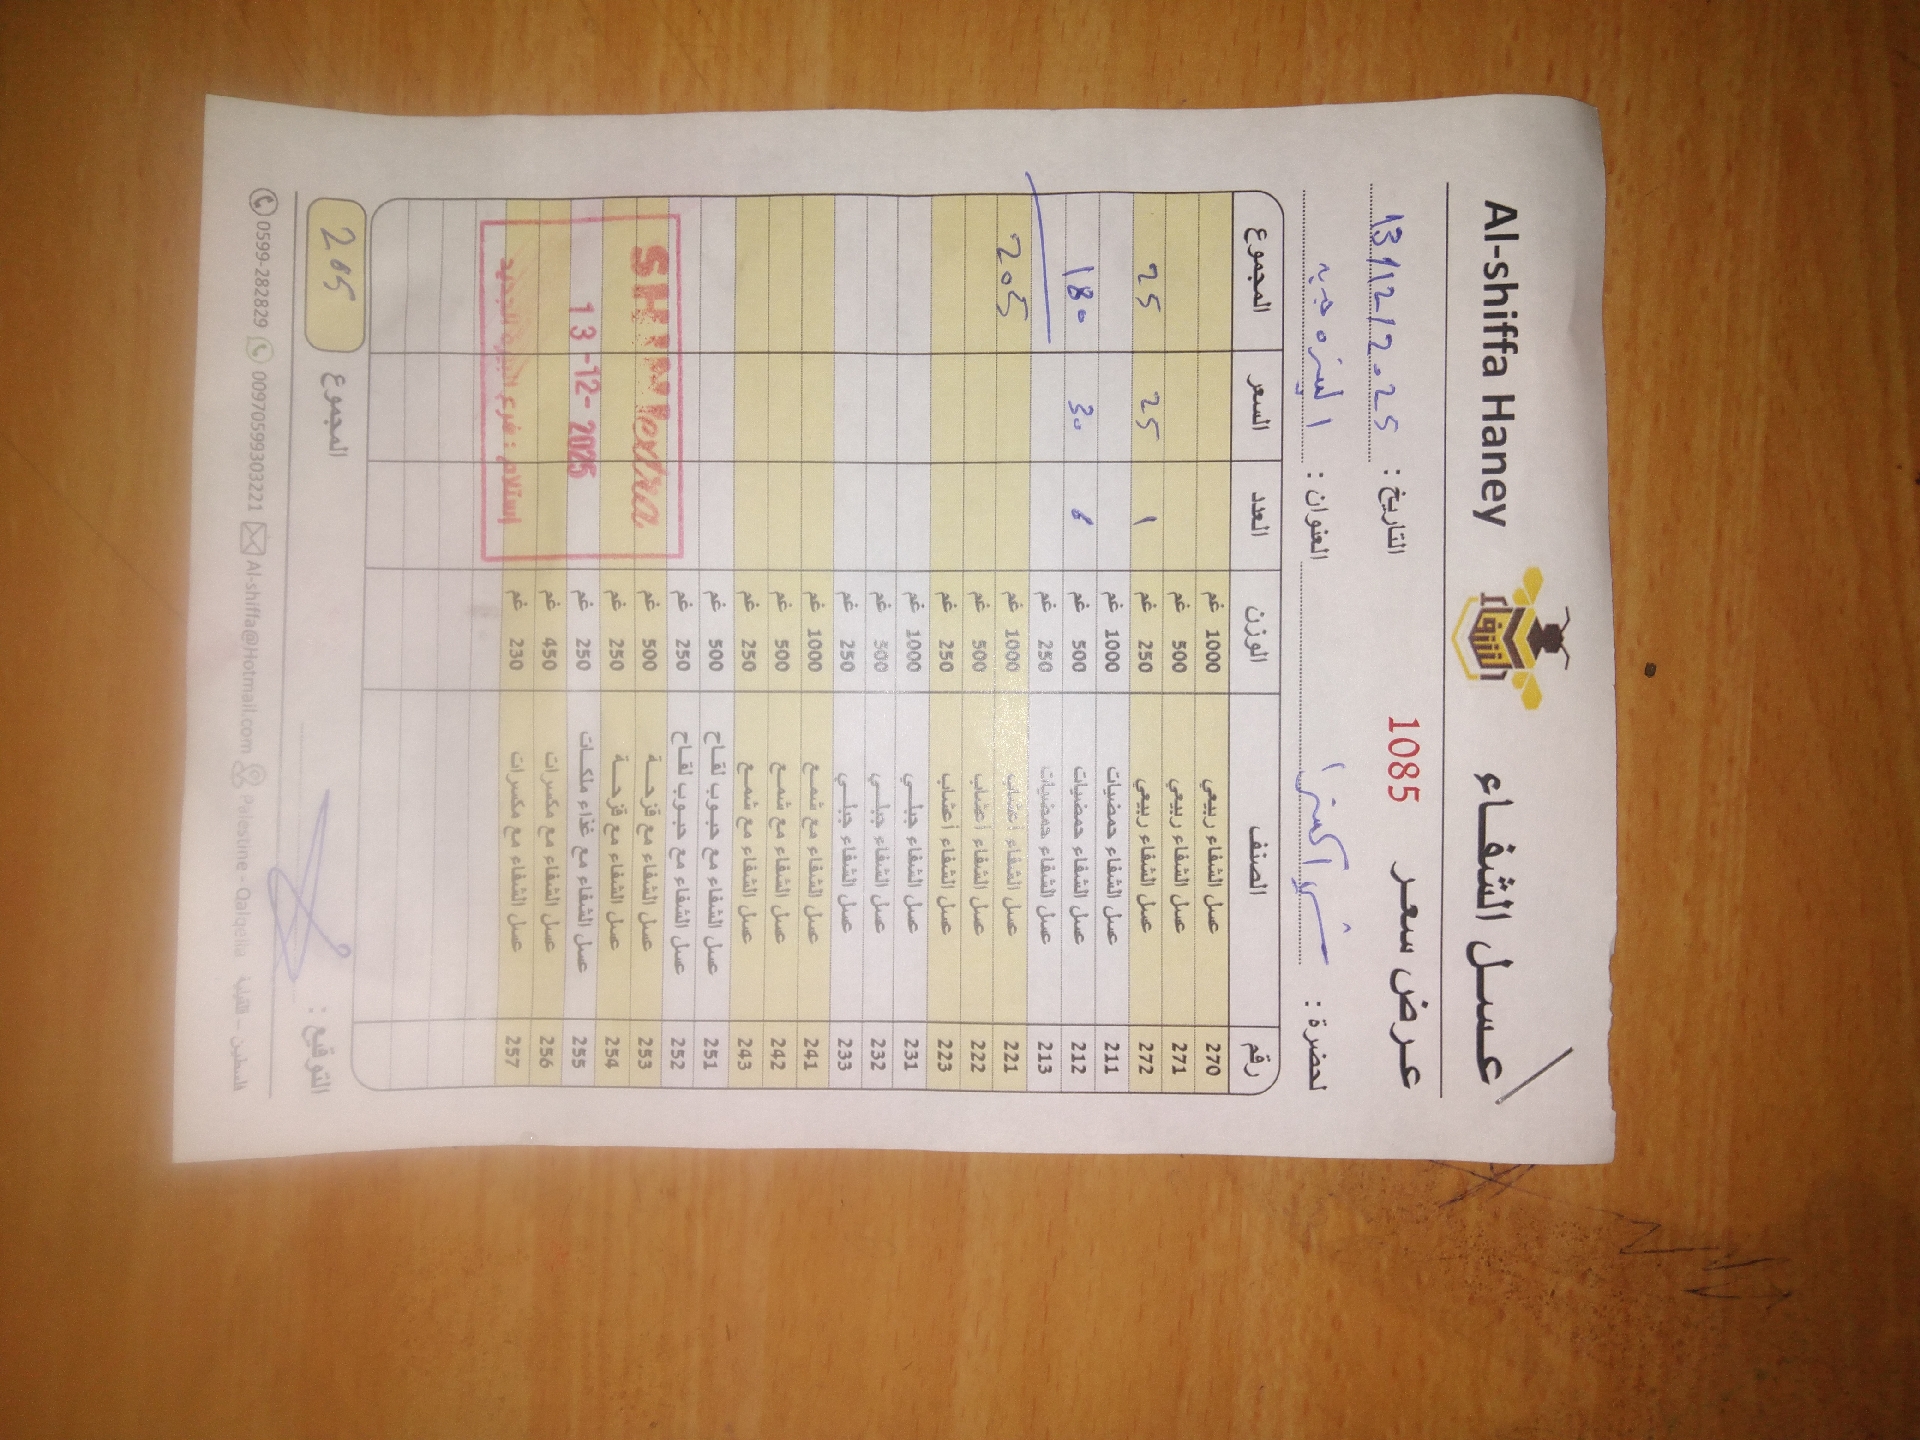 Al-shiffa Haney
النزقا
عسل الشفاء
عرض سعر
1085
التاريخ : 13/12/2025
لحضرة :
العنوان :
رقم الصنف الوزن العدد السعر المجموع
270 عسل الشفاء ربيعي 1000 غم
271 عسل الشفاء ربيعي 500 غم
272 عسل الشفاء ربيعي 250 غم 1 25 25
211 عسل الشفاء حمضيات 1000 غم
212 عسل الشفاء حمضيات 500 غم 6 30 180
213 عسل الشفاء حمضيات 250 غم
221 عسل الشفاء أعشاب 1000 غم 205
222 عسل الشفاء أعشاب 500 غم
223 عسل الشفاء أعشاب 250 غم
231 عسل الشفاء جبلـي 1000 غم
232 عسل الشفاء جبلـي 500 غم
233 عسل الشفاء جبلـي 250 غم
241 عسل الشفاء مع شمـع 1000 غم
242 عسل الشفاء مع شمـع 500 غم
243 عسل الشفاء مع شمـع 250 غم
251 عسل الشفاء مع حبـوب لقـاح 500 غم
252 عسل الشفاء مع حبـوب لقـاح 250 غم
253 عسل الشفاء مع قزحـة 500 غم
254 عسل الشفاء مع قزحـة 250 غم
255 عسل الشفاء مع غذاء ملكـات 250 غم
256 عسل الشفاء مع مكسرات 450 غم
257 عسل الشفاء مع مكسرات 230 غم
SHINI extra
13-12-2025
إستلام : فرع البيرة الجديد
التوقيع :
المجموع 205
0599-282829 00970599303221 Al-shiffa@Hotmail.com Palestine - Qalqelia فلسطين - قلقيلية